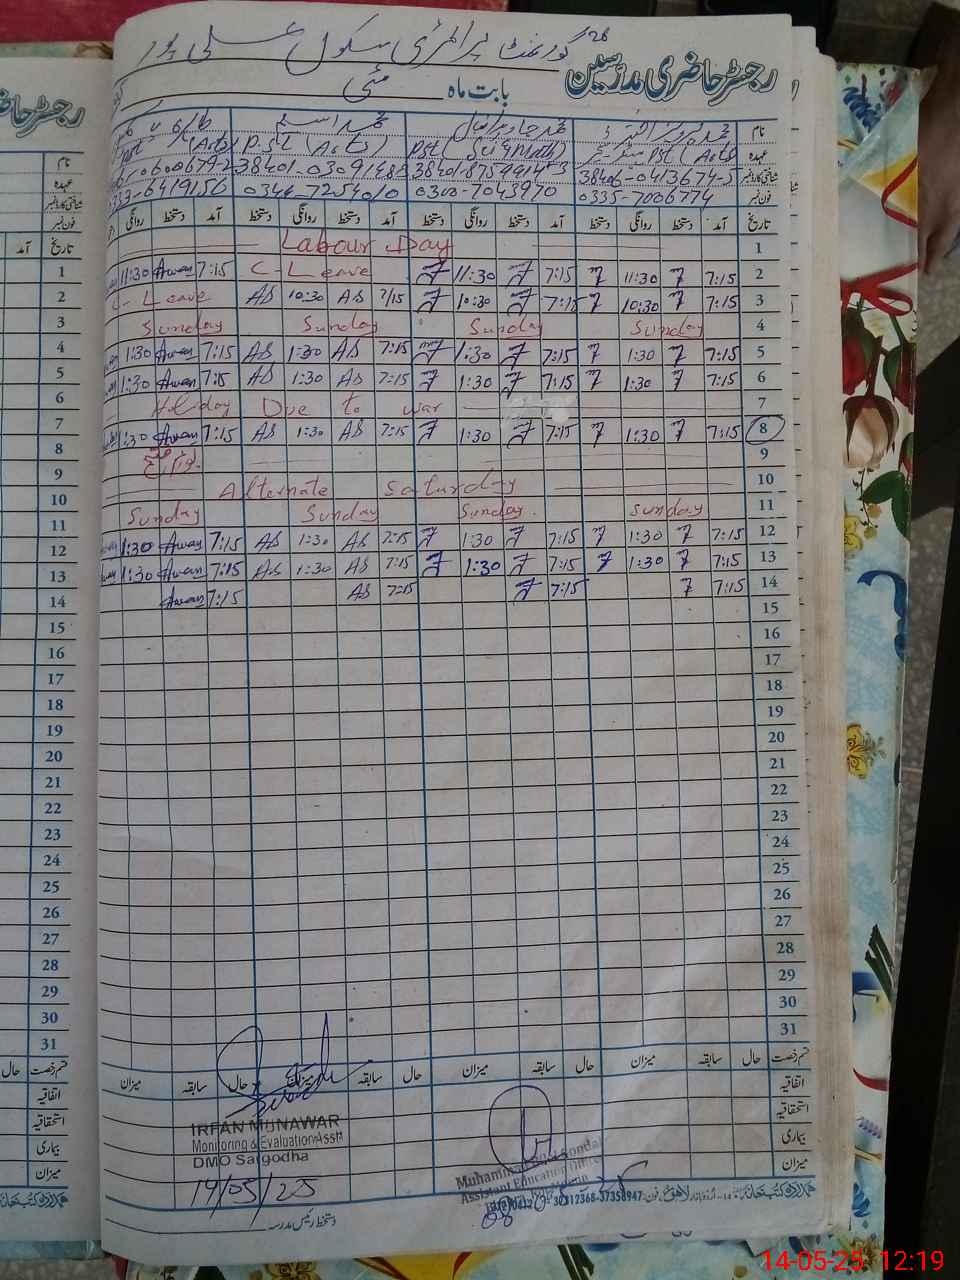 گورنمنٹ پرائمری سکول علی پور
رجسٹر حاضری مدرسین
بابت ماہ مئی
نام
عہدہ PST (Arts) PST (Sci & Math) P.S.T (Arts) (Arts)
شناختی کارڈ نمبر 38406-0413674-5 38401-8759914-3
فون نمبر 0335-7006774 0300-7043970 0346-7254010 0333-6419156
تاریخ آمد دستخط روانگی دستخط آمد دستخط روانگی دستخط آمد دستخط روانگی دستخط آمد دستخط روانگی
1 Labour Day
2 7:15 11:30 7:15 11:30 C-Leave 7:15 Awan 11:30
3 7:15 10:30 7:15 10:30 7/15 AS 10:30 AS C-Leave
4 Sunday Sunday Sunday Sunday
5 7:15 1:30 7:15 1:30 7:15 AS 1:30 AS 7:15 Awan 1:30
6 7:15 1:30 7:15 1:30 7:15 AS 1:30 AS 7:15 Awan 1:30
7 Holiday Due to war
8 7:15 1:30 7:15 1:30 7:15 AS 1:30 AS 7:15 Awan 1:30
9
10 Alternate Saturday
11 Sunday Sunday Sunday Sunday
12 7:15 1:30 7:15 1:30 7:15 AS 1:30 AS 7:15 Awan 1:30
13 7:15 1:30 7:15 1:30 7:15 AS 1:30 AS 7:15 Awan 1:30
14 7:15 7:15 7:15 AS 7:15 Awan
15
16
17
18
19
20
21
22
23
24
25
26
27
28
29
30
31
قسم رخصت حال سابقہ میزان حال سابقہ میزان حال سابقہ میزان حال سابقہ میزان
اتفاقیہ
استحقاقیہ
بیماری
میزان
IRFAN MUNAWAR
Monitoring & Evaluation Asstt
DMO Sargodha
14/05/25
Assistant Education Officer
دستخط رئیس مدرسہ
نام
عہدہ
شناختی کارڈ نمبر
فون نمبر
تاریخ آمد
1
2
3
4
5
6
7
8
9
10
11
12
13
14
15
16
17
18
19
20
21
22
23
24
25
26
27
28
29
30
31
قسم رخصت حال
اتفاقیہ
استحقاقیہ
بیماری
میزان
14-05-25 12:19